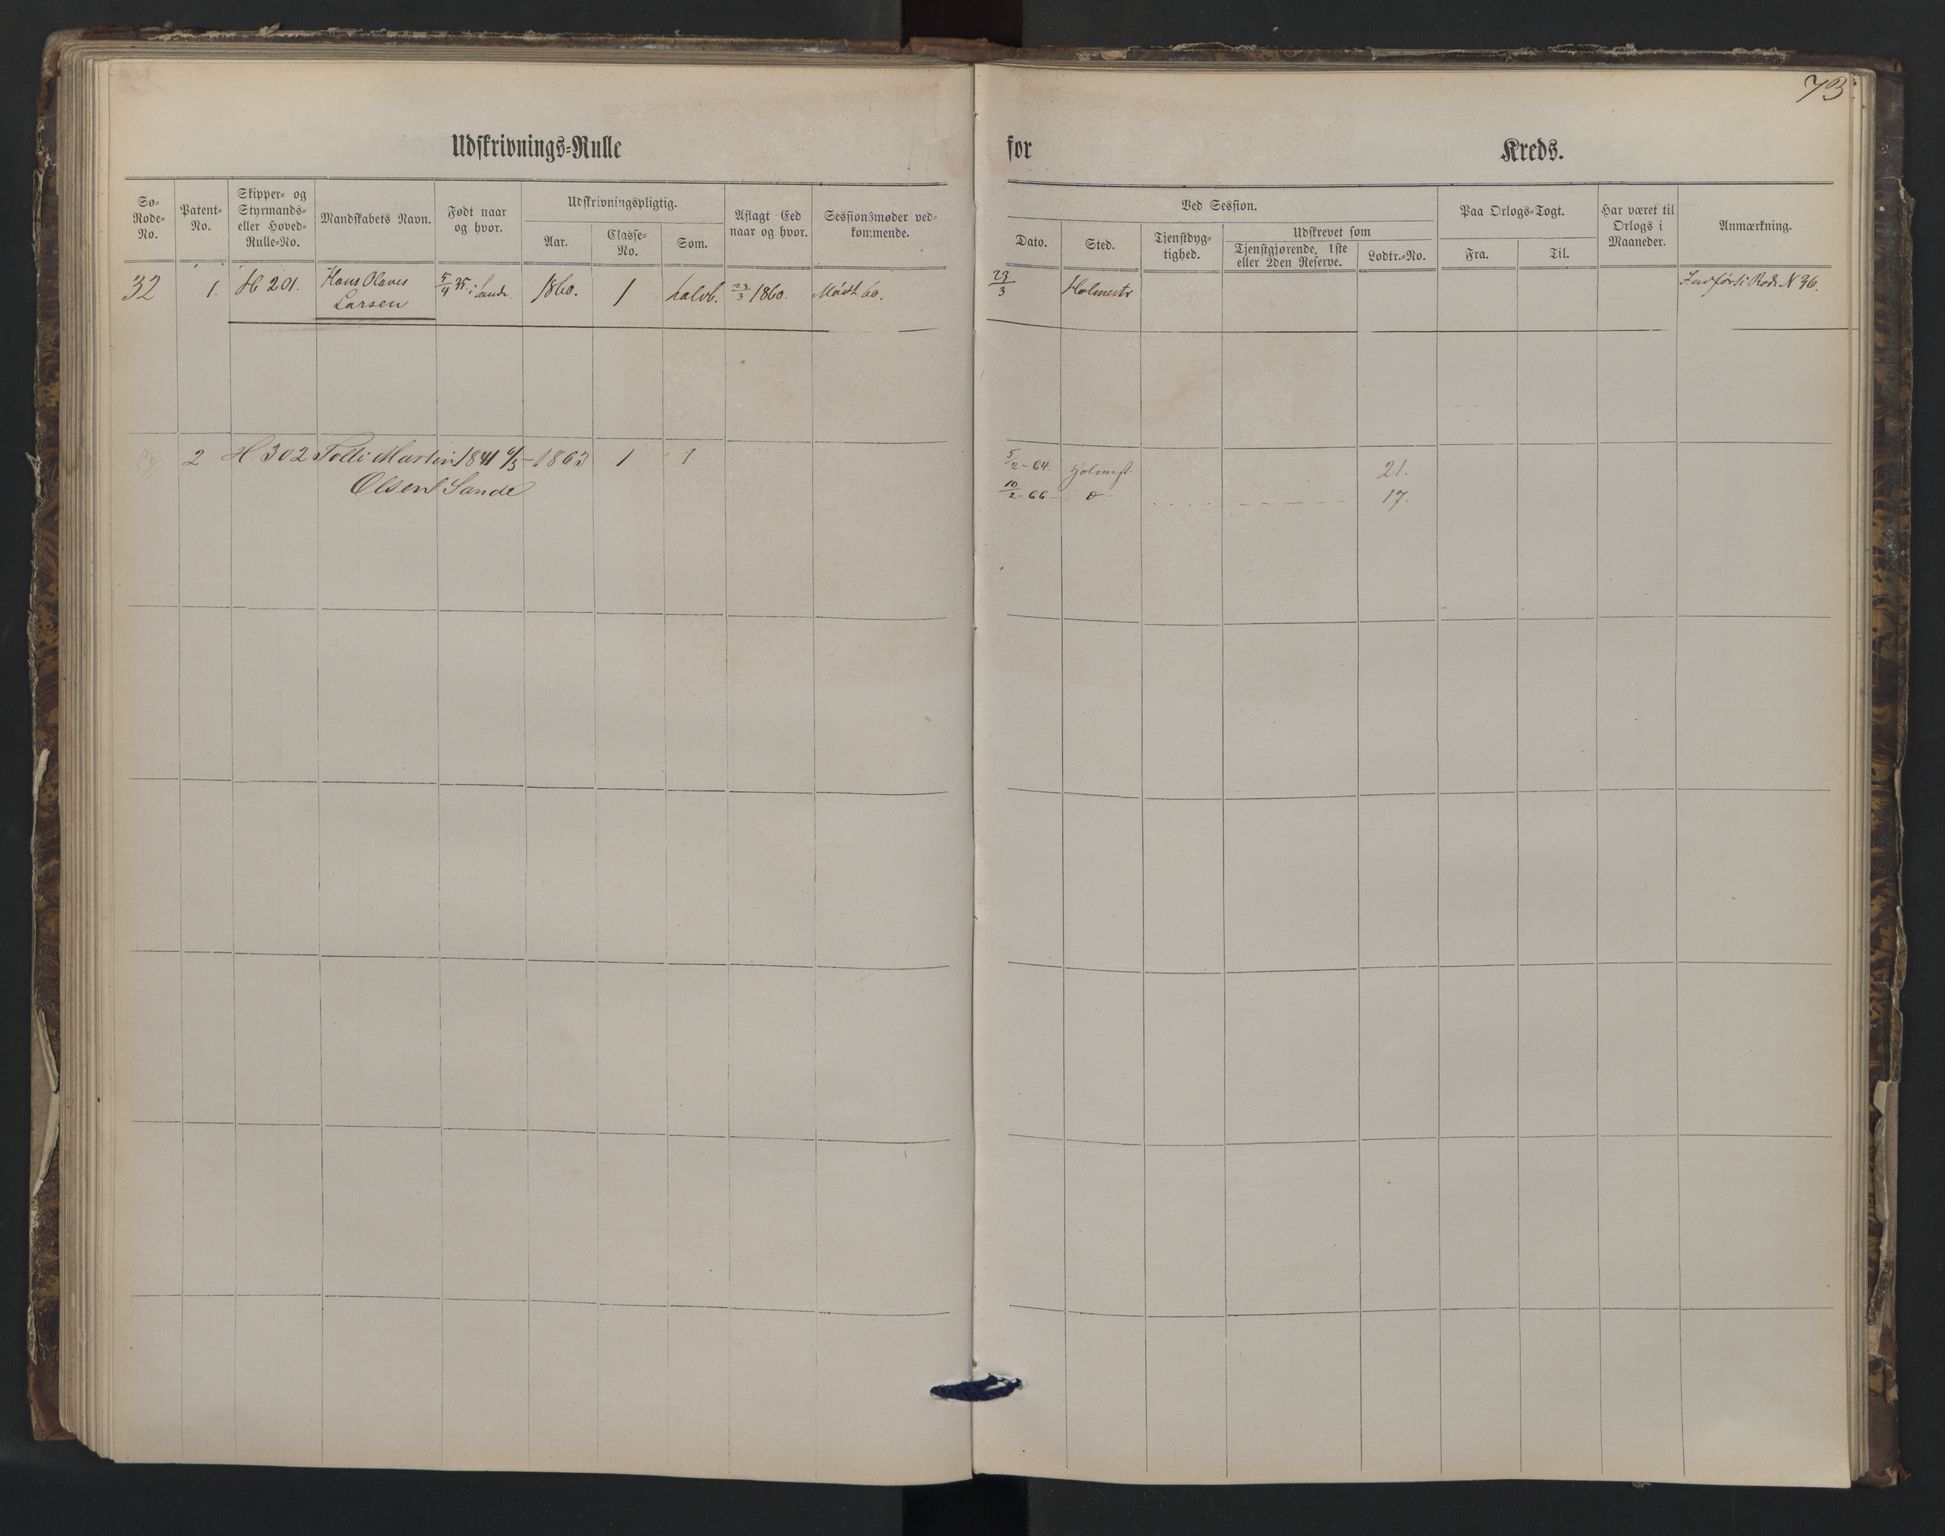 73
Udskrivnings-Rulle for Kreds.
Sø-Rode-No.
Patent-No.
Skipper- og Styrmands- eller Hoved-Rulle-No.
Mandskabets Navn.
Født naar og hvor.
Udskrivningspligtig.
Aar.
Classe-No.
Som.
Aflagt Eed naar og hvor.
Sessionsmøder vedkommende.
Ved Session.
Dato.
Sted.
Tjenstdygtighed.
Udskrevet som
Tjenstgjørende, 1ste eller 2den Reserve.
Lodtr.-No.
Paa Orlogs-Togt.
Fra.
Til.
Har været til Orlogs i Maaneder.
Anmærkning.
32 1. H 201. Hans Olaves 5/4 35. i Sande 1860. 1 halvb. 23/3 1860. Mødt 60. 23/3 Holmestr Indført i Rode N 36.
Larsen
2 H. 302 Martin 1841 6/5 - 1863 1 1 5/2 - 64. Holmest. 21.
Olsen Sande 10/2 - 66 17.